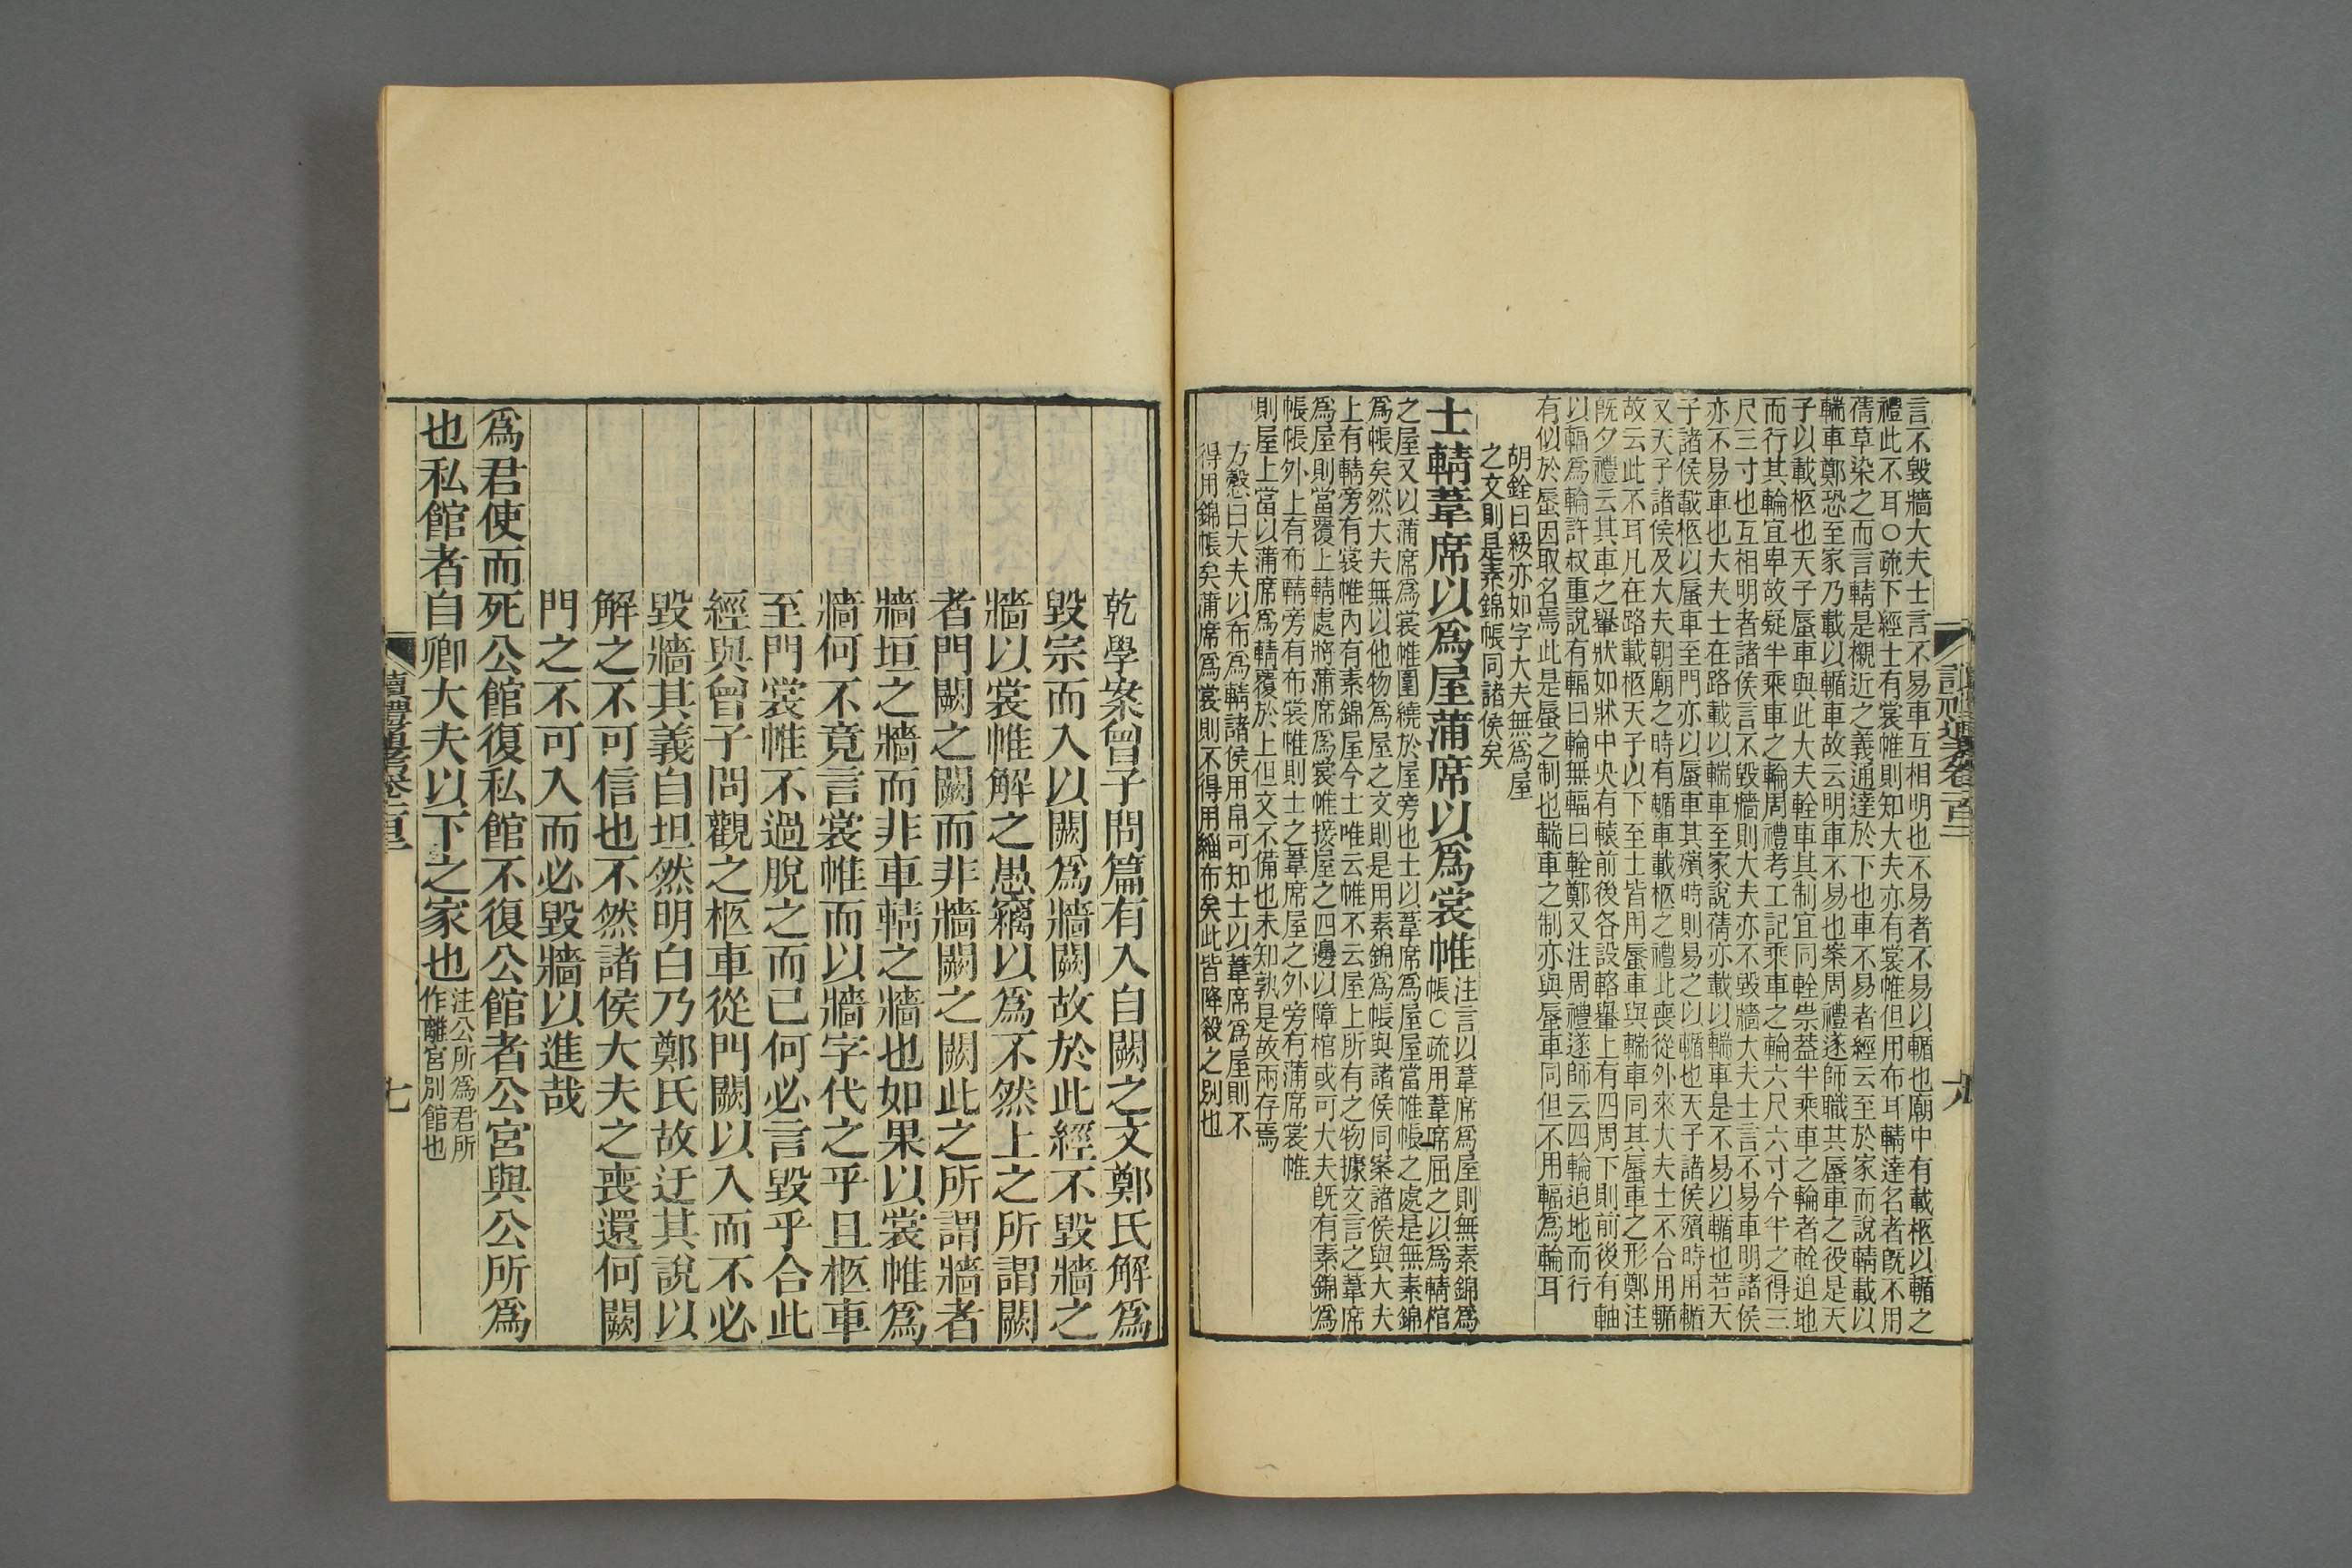 言不毀牆大夫士言不易車互相明也不易者不易以輴也廟中有載柩以輴之
禮此不耳○疏下經士有裳帷則知大夫亦有裳帷但用布耳輤達名者旣不用
蒨草染之而言輤是櫬近之義通達於下也車不易者經云至於家而說輤載以
輲車鄭恐至家乃載以輴車故云明車不易也案周禮遂師職其蜃車之役是天
子以載柩也天子蜃車與此大夫輇車其制宜同輇祟葢半乘車之輪者輇迫地
而行其輪宜卑故疑半乘車之輪周禮考工記乘車之輪六尺六寸今半之得三
尺三寸也互相明者諸侯言不毀牆則大夫亦不毀牆大夫士言不易車明諸侯
亦不易車也大夫士在路載以輲車至家說蒨亦載以輲車是不易以輴也若天
子諸侯載柩以蜃車至門亦以蜃車其殯時則易之以輴也天子諸侯殯時用輴
又天子諸侯及大夫朝廟之時有輴車載柩之禮此喪從外來大夫士不合用輴
故云此不耳凡在路載柩天子以下至士皆用蜃車與輲車同其蜃車之形鄭注
旣夕禮云其車之轝狀如牀中央有轅前後各設輅轝上有四周下則前後有軸
以輻爲輪許叔重說有輻曰輪無輻曰輇鄭又注周禮遂師云四輪迫地而行
有似於蜃因取名焉此是蜃之制也輲車之制亦與蜃車同但不用輻爲輪耳
胡銓曰綏亦如字大夫無爲屋
之文則是素錦帳同諸侯矣
士輤葦席以爲屋蒲席以爲裳帷注言以葦席爲屋則無素錦爲
帳○疏用葦席屈之以爲輤棺
之屋又以蒲席爲裳帷圍繞於屋旁也士以葦席爲屋屋當帷帳之處是無素錦
爲帳矣然大夫無以他物爲屋之文則是用素錦爲帳與諸侯同案諸侯與大夫
上有輤旁有裳帷內有素錦屋今士唯云帷不云屋上所有之物據文言之葦席
爲屋則當覆上輤處將蒲席爲裳帷接屋之四邊以障棺或可大夫旣有素錦爲
帳帳外上有布輤旁有布裳帷則士之葦席屋之外旁有蒲席裳帷
則屋上當以蒲席爲輤覆於上但文不備也未知孰是故兩存焉
方慤曰大夫以布爲輤諸侯用帛可知士以葦席爲屋則不
得用錦帳矣蒲席爲裳則不得用緇布矣此皆降殺之別也
乾學案曾子問篇有入自闕之文鄭氏解爲
毀宗而入以闕爲牆闕故於此經不毀牆之
牆以裳帷解之愚竊以爲不然上之所謂闕
者門闕之闕而非牆闕之闕此之所謂牆者
牆垣之牆而非車輤之牆也如果以裳帷爲
牆何不竟言裳帷而以牆字代之乎且柩車
至門裳帷不過脫之而已何必言毀乎合此
經與曾子問觀之柩車從門闕以入而不必
毀牆其義自坦然明白乃鄭氏故迂其說以
解之不可信也不然諸侯大夫之喪還何闕
門之不可入而必毀牆以進哉
爲君使而死公館復私館不復公館者公宮與公所爲
也私館者自卿大夫以下之家也注公所爲君所
作離宮別館也
讀禮通考卷一百三
七